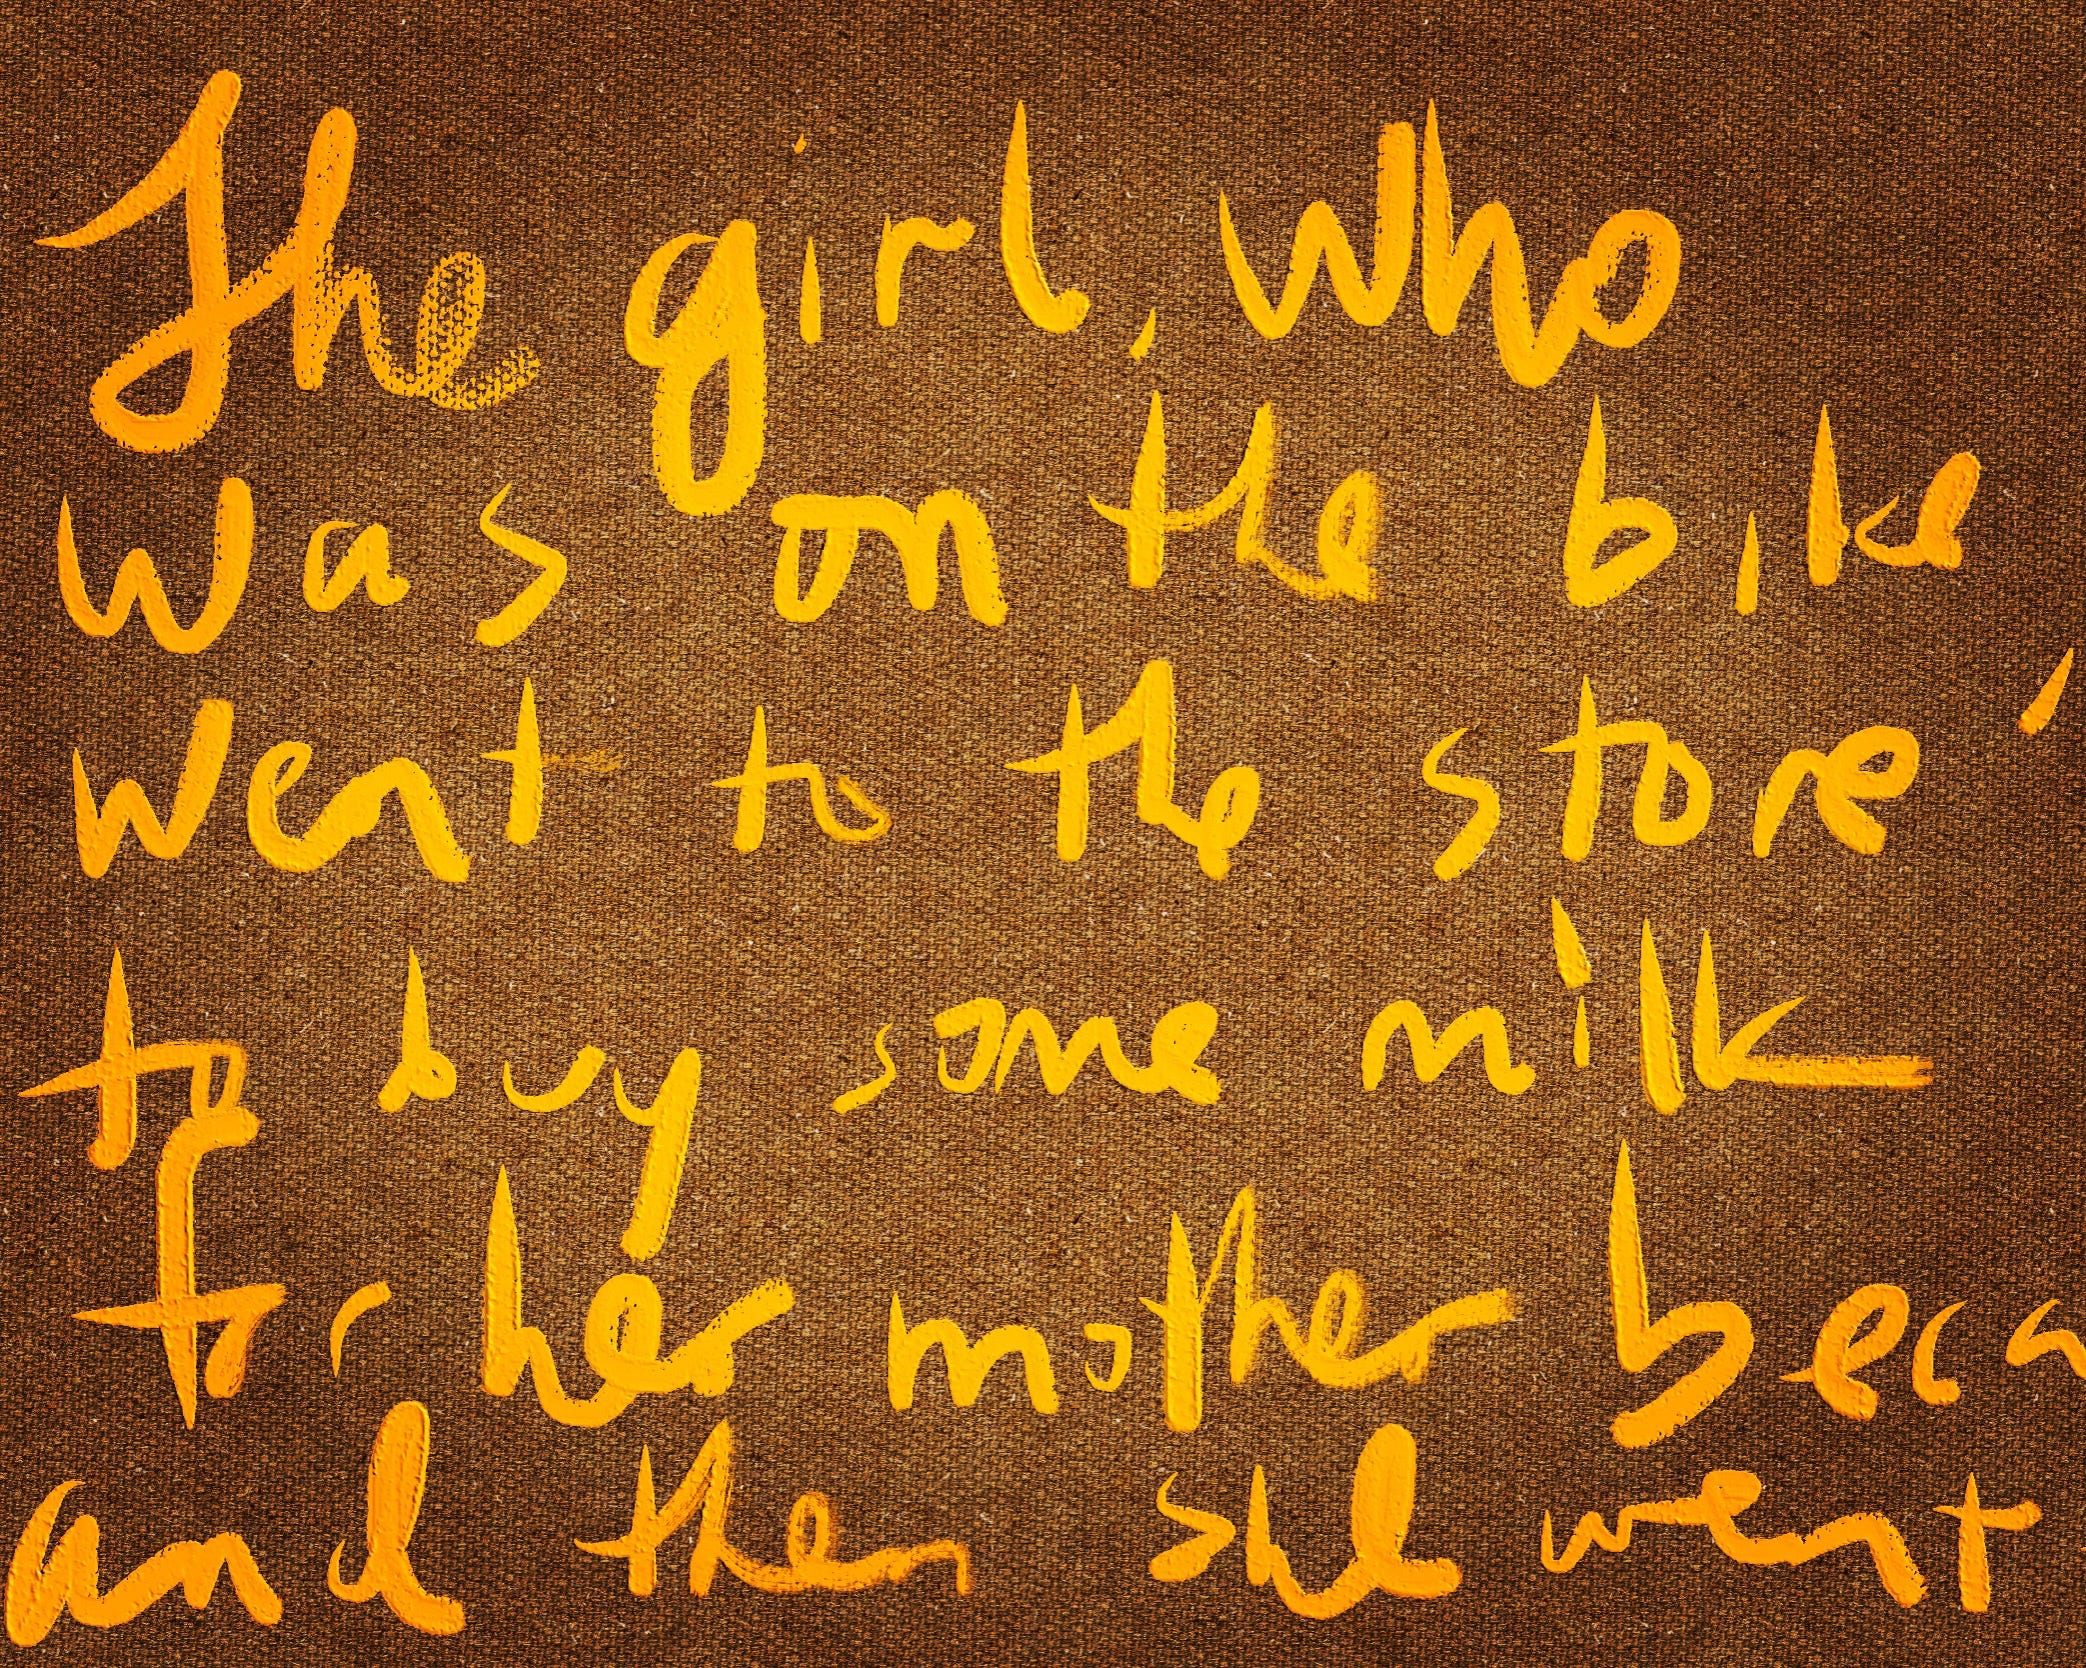 The girl, who
was on the bike
went to the store,
to buy some milk
for her mother beca
and then she went